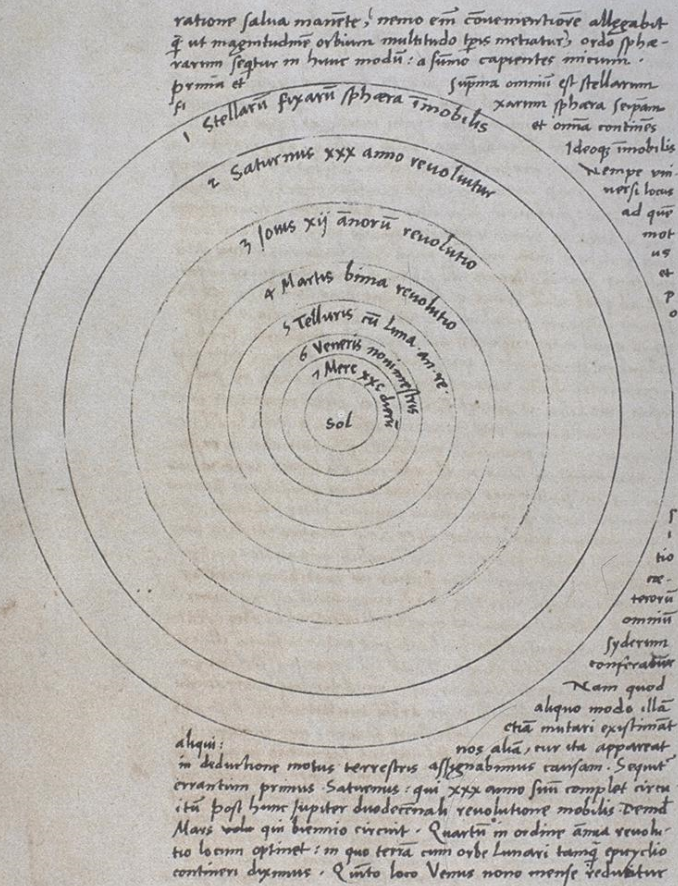 ratione salva manẽte, nemo em̃ cõvenientiorẽ allegabit
q̃ ut magnitudinẽ orbium multitudo tp̃is metiatur, ordo sphæ-
rarum seq̃tur in hunc modũ: a sũmo capientes initium.
prima et suprĩa omniũ est stellarum
fi xarum sphæra seip̃am
et omĩa continẽs
Ideoq; im̃obilis
Nempe uni-
versi locus
ad quẽ
mot
us
et
p
o
1 Stellarũ fixarũ sphæra im̃obilis
2 Saturnus xxx anno revolvitur
3 Jovis xij ãnorũ revolutio
4 Martis bima revolutio
5 Telluris cũ Luna . an . re .
6 Veneris nonimestris
7 Merc xxc dierũ
Sol
s
i
tio
cæ-
terorũ
omniũ
syderum
conferatur
Nam quod
aliquo modo illã
etiã mutari existimãt
aliqui: nos aliã, cur ita appareat
in deductione motus terrestris assignabimus causam . Sequit̃
errantium primus Saturnus: qui xxx anno suũ complet circu
itũ post hunc Jupiter duodecennali revolutione mobilis Deind
Mars qui biennio circuit . Quartũ in ordine ãnua revolu-
tio locum optinet: in quo terrã cum orbe Lunari tamq̃ epicyclio
contineri diximus . Quinto loco Venus nono mense reducitur